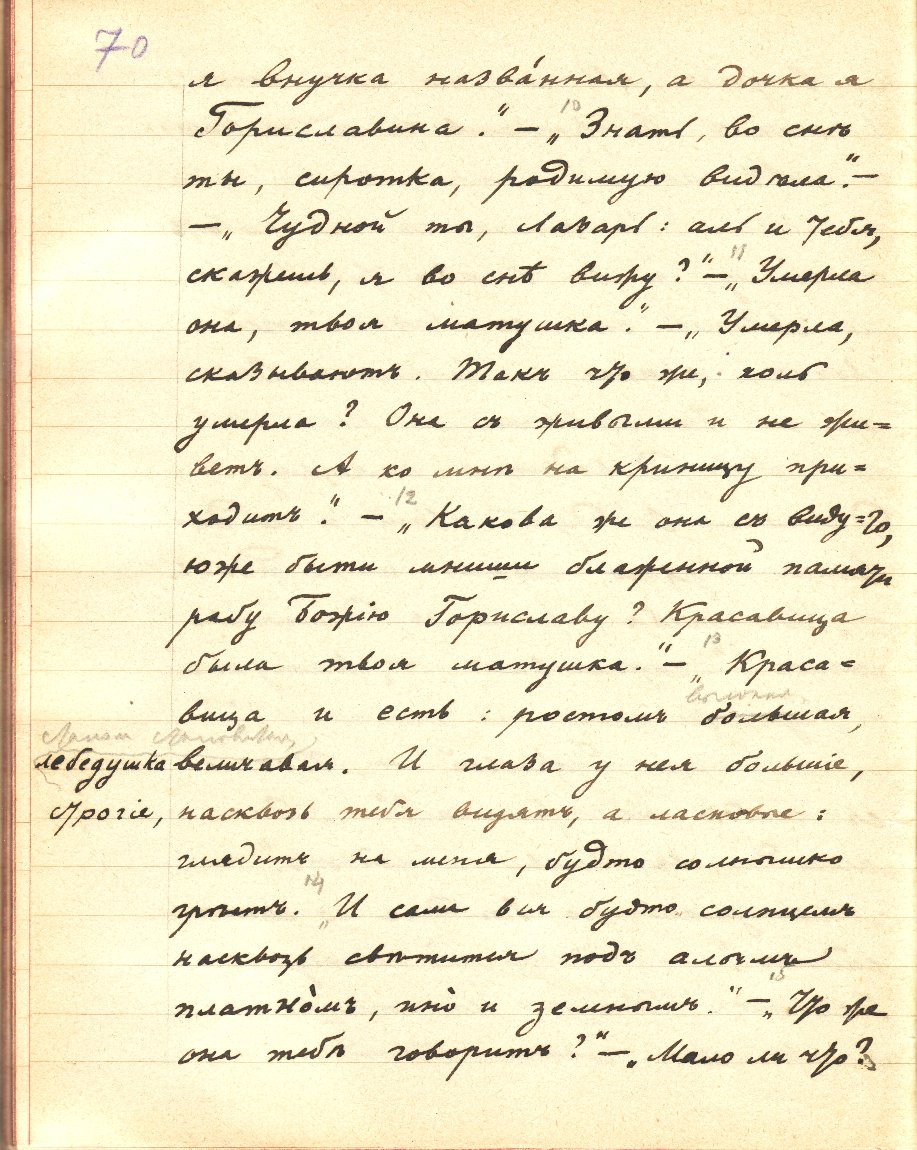 70
я внучка назва́нная, а дочка я
Гориславина." – 10 „Знать, во снѣ
ты, сиротка, родимую видѣла." –
– „Чудной ты, Лазарь: аль и тебя,
скажешь, я во снѣ вижу?" – 11 „Умерла
она, твоя матушка." – „Умерла,
сказываютъ. Такъ что же, коль
умерла? Она съ живыми и не жи=
ветъ. А ко мнѣ на криницу при=
ходитъ." – 12 „Какова же она съ виду=то,
юже быти мниши блаженной памяти
рабу Божію Гориславу? Красавица
была твоя матушка." – 13 „Краса=
вица и есть: ростомъ большая,
лебедушка величавая. И глаза у нея большіе,
строгіе, насквозь тебя видятъ, а ласковые:
глядитъ на меня, будто солнышко
грѣетъ. 14 „И сама вся будто солнцемъ
насквозь свѣтится подъ алымъ
платно̀мъ, ино̀ и земнымъ." – 15 „Что же
она тебѣ говоритъ?" – „Мало ли что?